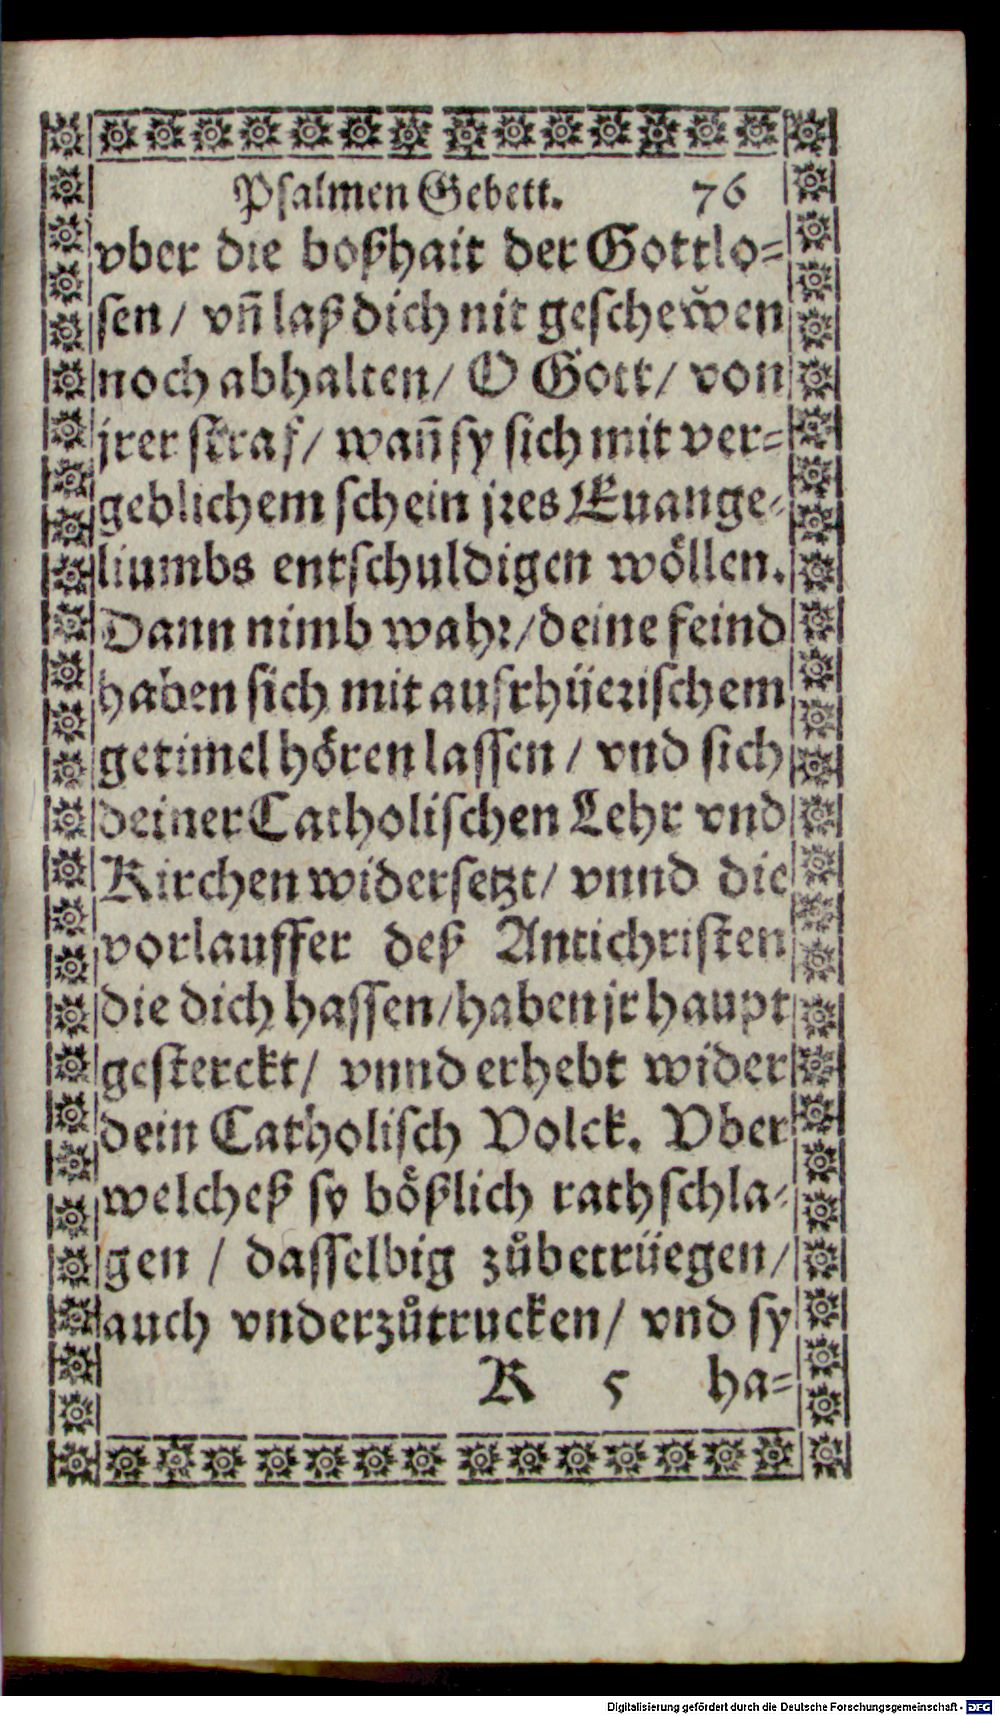 Psalmen Gebett. 76
vber die boßhait der Gottlo=
sen / vn̄ laß dich nit geschew̌en
noch abhalten / O Gott / von
jrer straf / wan̄ sy sich mit ver=
geblichem schein jres Euange=
liumbs entschuldigen wöllen.
Dann nimb wahr / deine feind
haben sich mit aufrhüerischem
getimel hören lassen / vnd sich
deiner Catholischen Lehr vnd
Kirchen widersetzt / vnnd die
vorlauffer deß Antichristen
die dich hassen / haben jr haupt
gesterckt / vnnd erhebt wider
dein Catholisch Volck. Vber
welcheß sy bößlich rathschla=
gen / dasselbig zůbetrüegen /
auch vnderzůtrucken / vnd sy
K 5 ha=
Digitalisierung gefördert durch die Deutsche Forschungsgemeinschaft - DFG